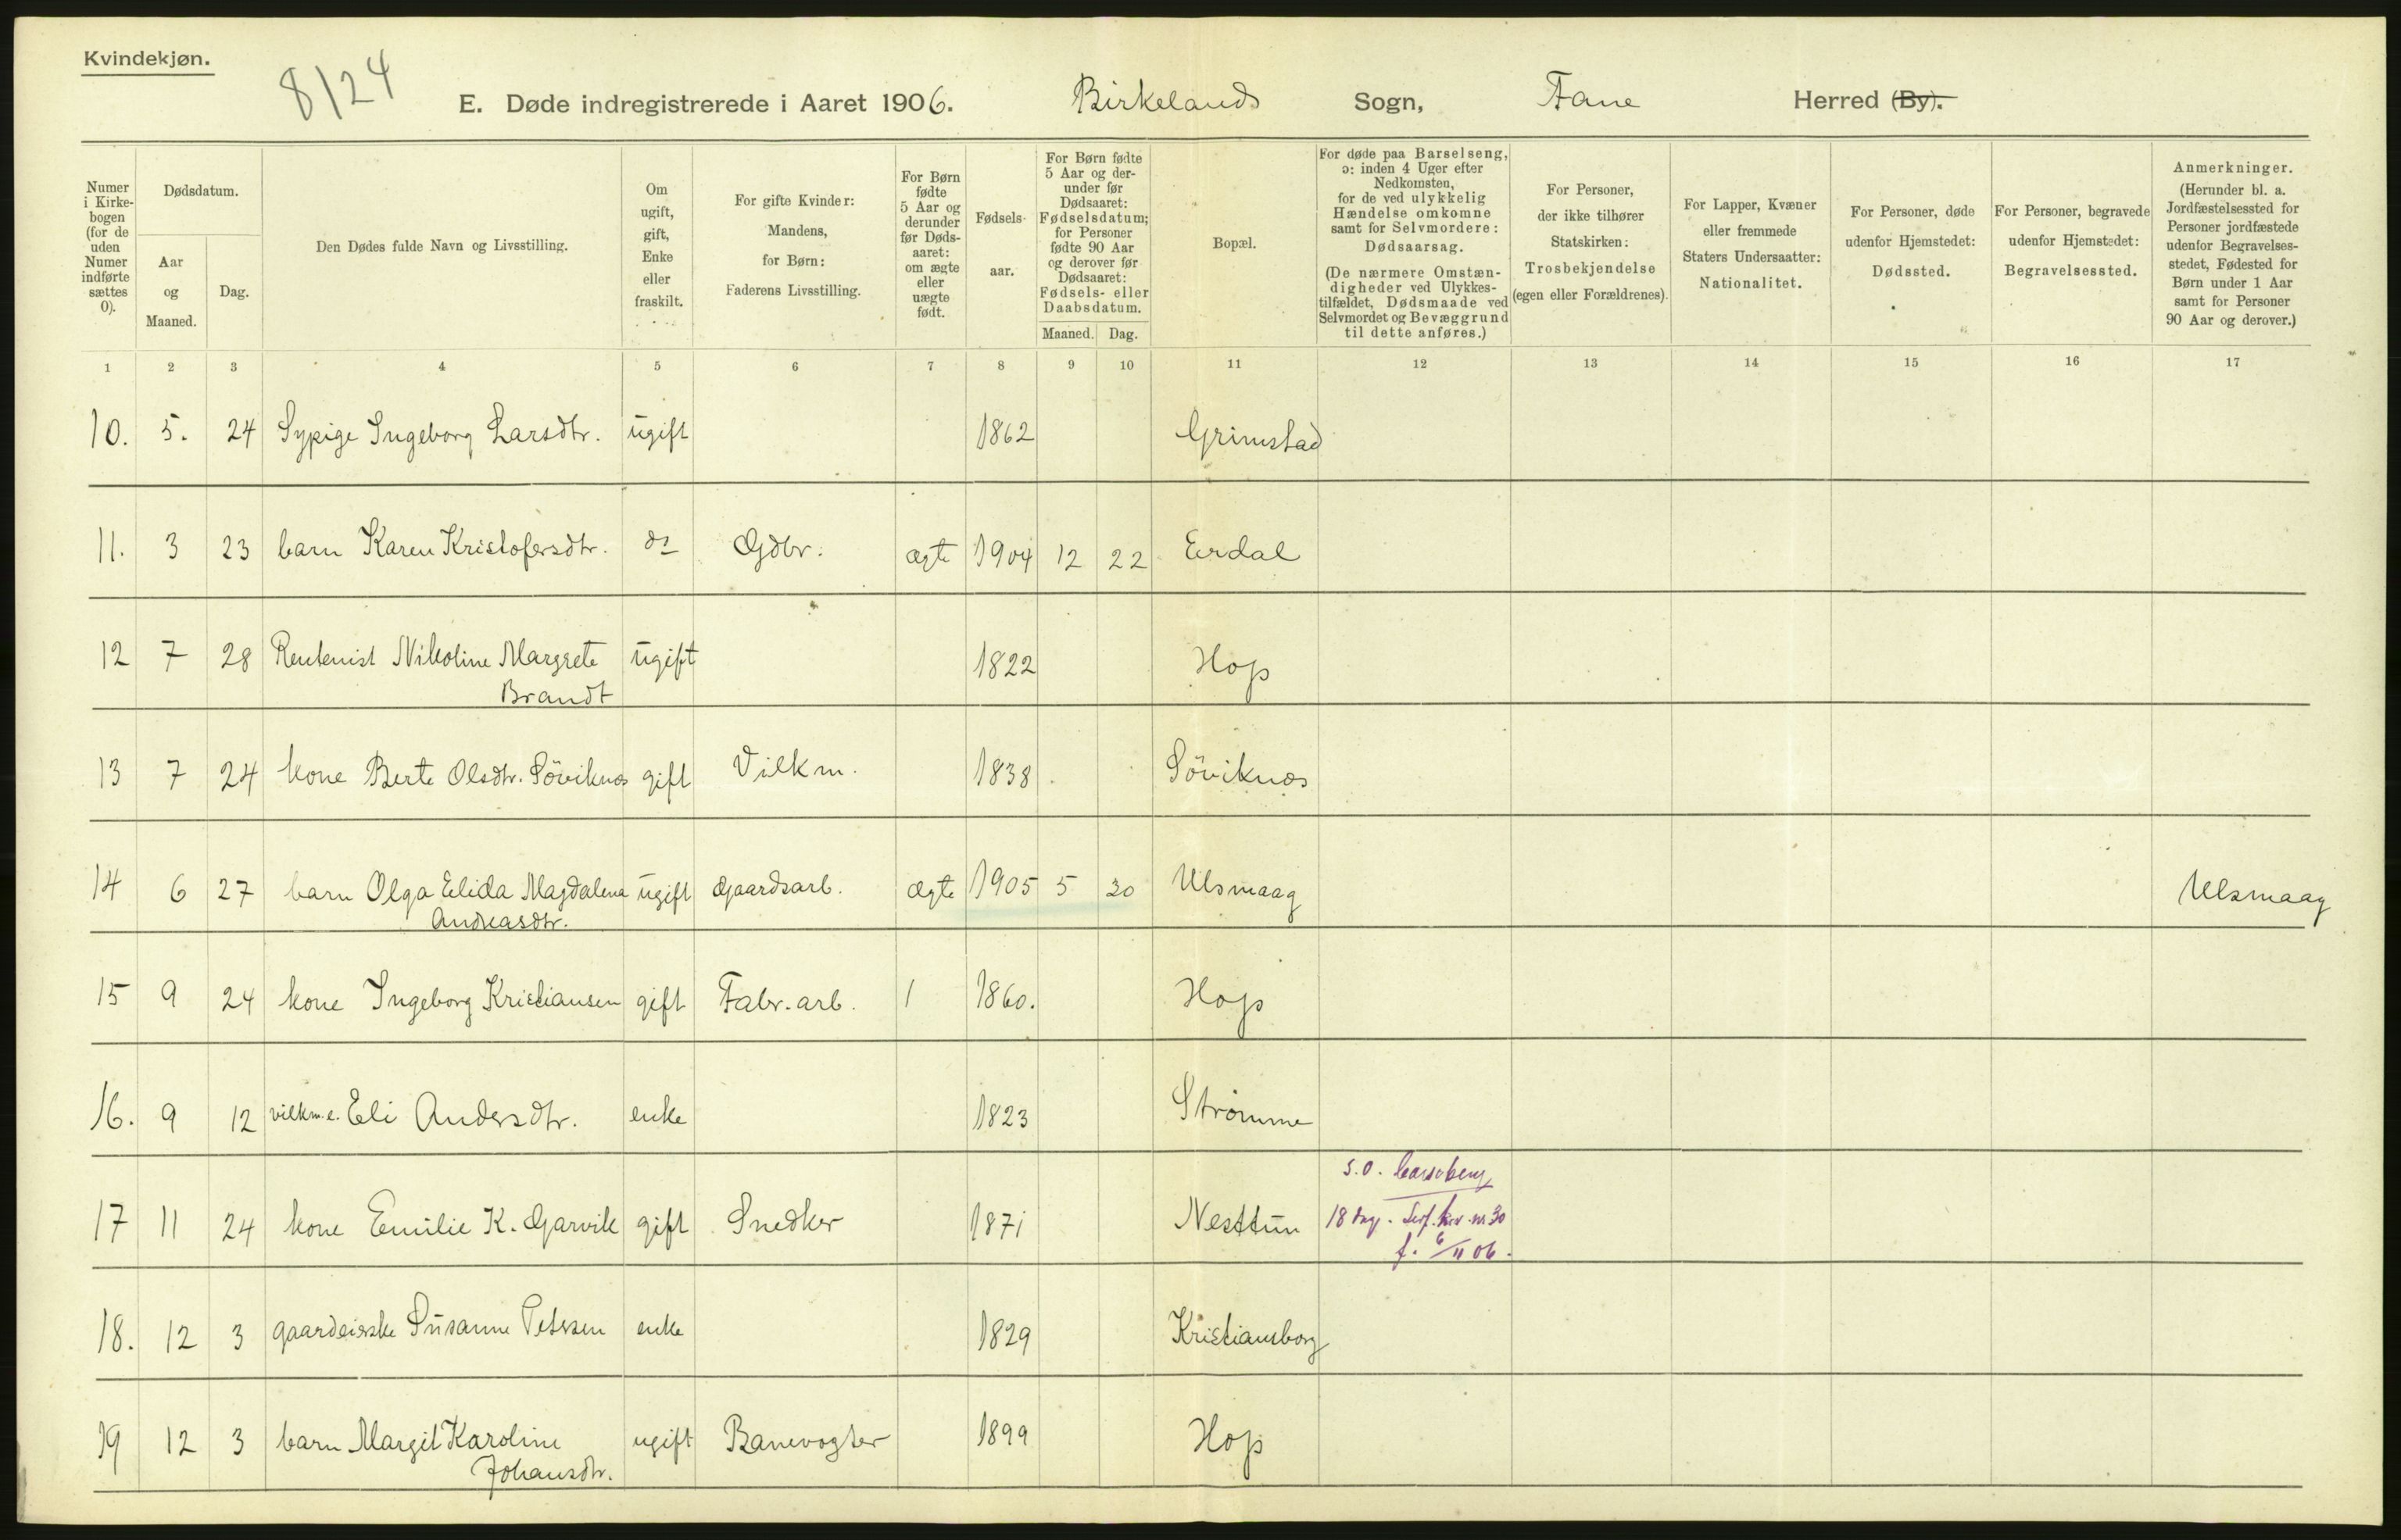 Kvindekjøn.
8/24
E. Døde indregistrerede i Aaret 1906. Birkelands Sogn, Fane Herred (By).
Numer i Kirkebogen (for de uden Numer indførte sættes 0).
Dødsdatum.
Aar og Maaned.
Dag.
Den Dødes fulde Navn og Livsstilling.
Om ugift, gift, Enke eller fraskilt.
For gifte Kvinder: Mandens, for Børn: Faderens Livsstilling.
For Børn fødte 5 Aar og derunder før Dødsaaret: om ægte eller uægte født.
Fødselsaar.
For Børn fødte 5 Aar og derunder før Dødsaaret: Fødselsdatum; for Personer fødte 90 Aar og derover før Dødsaaret: Fødsels- eller Daabsdatum.
Maaned. Dag.
Bopæl.
For døde paa Barselseng, ɔ: inden 4 Uger efter Nedkomsten, for de ved ulykkelig Hændelse omkomne samt for Selvmordere: Dødsaarsag.
(De nærmere Omstændigheder ved Ulykkestilfældet, Dødsmaade ved Selvmordet og Bevæggrund til dette anføres.)
For Personer, der ikke tilhører Statskirken: Trosbekjendelse (egen eller Forældrenes).
For Lapper, Kvæner eller fremmede Staters Undersaatter: Nationalitet.
For Personer, døde udenfor Hjemstedet: Dødssted.
For Personer, begravede udenfor Hjemstedet: Begravelsessted.
Anmerkninger. (Herunder bl. a. Jordfæstelsessted for Personer jordfæstede udenfor Begravelsesstedet, Fødested for Børn under 1 Aar samt for Personer 90 Aar og derover.)
1 2 3 4 5 6 7 8 9 10 11 12 13 14 15 16 17
10. 5. 24 Sypige Ingeborg Larsdtr. ugift 1862 Grimstad
11. 3 23 barn Karen Kristofersdtr. do Gdbr. ægte 1904 12 22 Erdal
12 7 28 Rentenist Nikoline Margrete ugift 1822 Hop
Brandt
13 7 24 kone Berte Olsdtr. Söviknæs gift Vilkm. 1838 Söviknæs
14 6 27 barn Olga Elida Magdalena ugift Gaardsarb. ægte 1905 5 30 Ulsmaag Ulsmaag
Andreasdtr.
15 9 24 kone Ingeborg Kristiansen gift Fabr. arb. 1 1860. Hop
16. 9 12 vilkm.e. Eli Andersdtr. enke 1823 Strömme
17 11 24 kone Emilie K. Garvik gift Snedker 1871 Nesttun
s.o. barsbeng
18 dag. nr 30
f. 6/11 06.
18. 12 3 gaardeierske Susanne Petersen enke 1829 Kristiansborg
19 12 3 barn Margit Karoline ugift Banevogter 1899 Hop
Johansdtr.